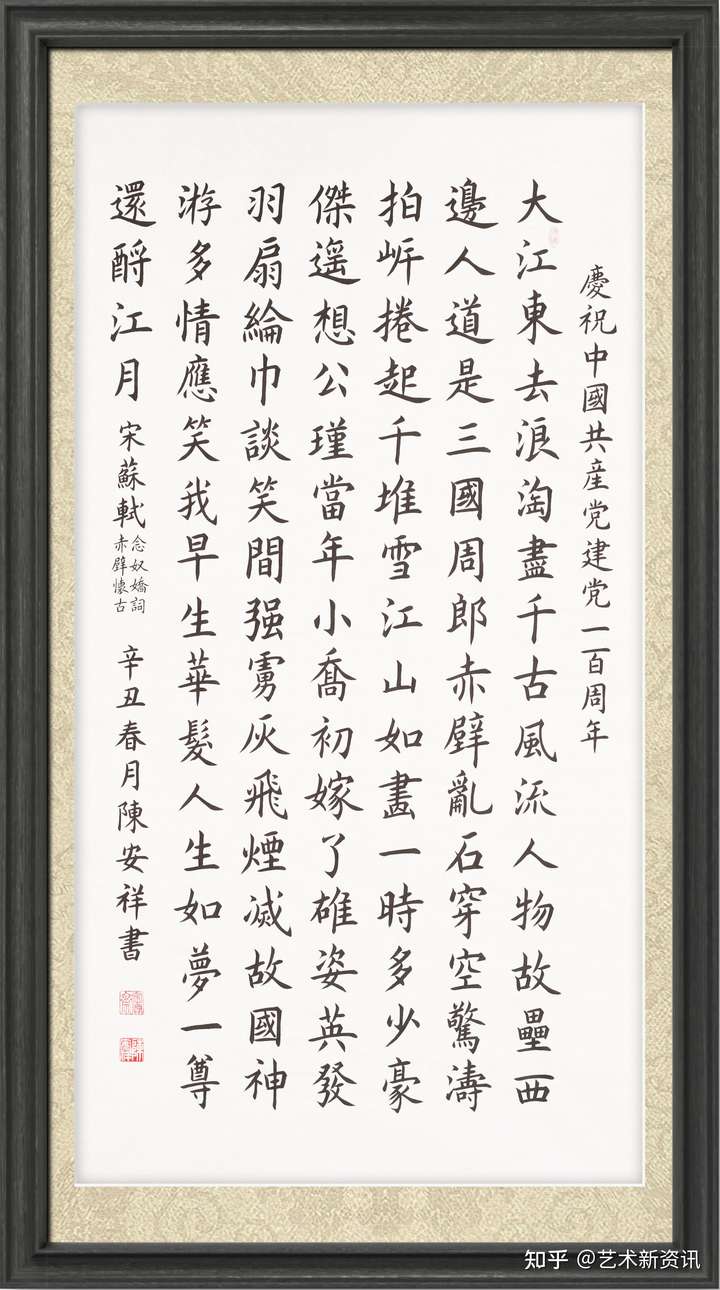 慶祝中國共産党建党一百周年
大江東去浪淘盡千古風流人物故壘西
邊人道是三國周郎赤壁亂石穿空驚濤
拍岸捲起千堆雪江山如畫一時多少豪
傑遥想公瑾當年小喬初嫁了雄姿英發
羽扇綸巾談笑間强虜灰飛煙滅故國神
游多情應笑我早生華髮人生如夢一尊
還酹江月 宋蘇軾 念奴嬌詞 赤壁懷古 辛丑春月陳安祥書
知乎 @艺术新资讯